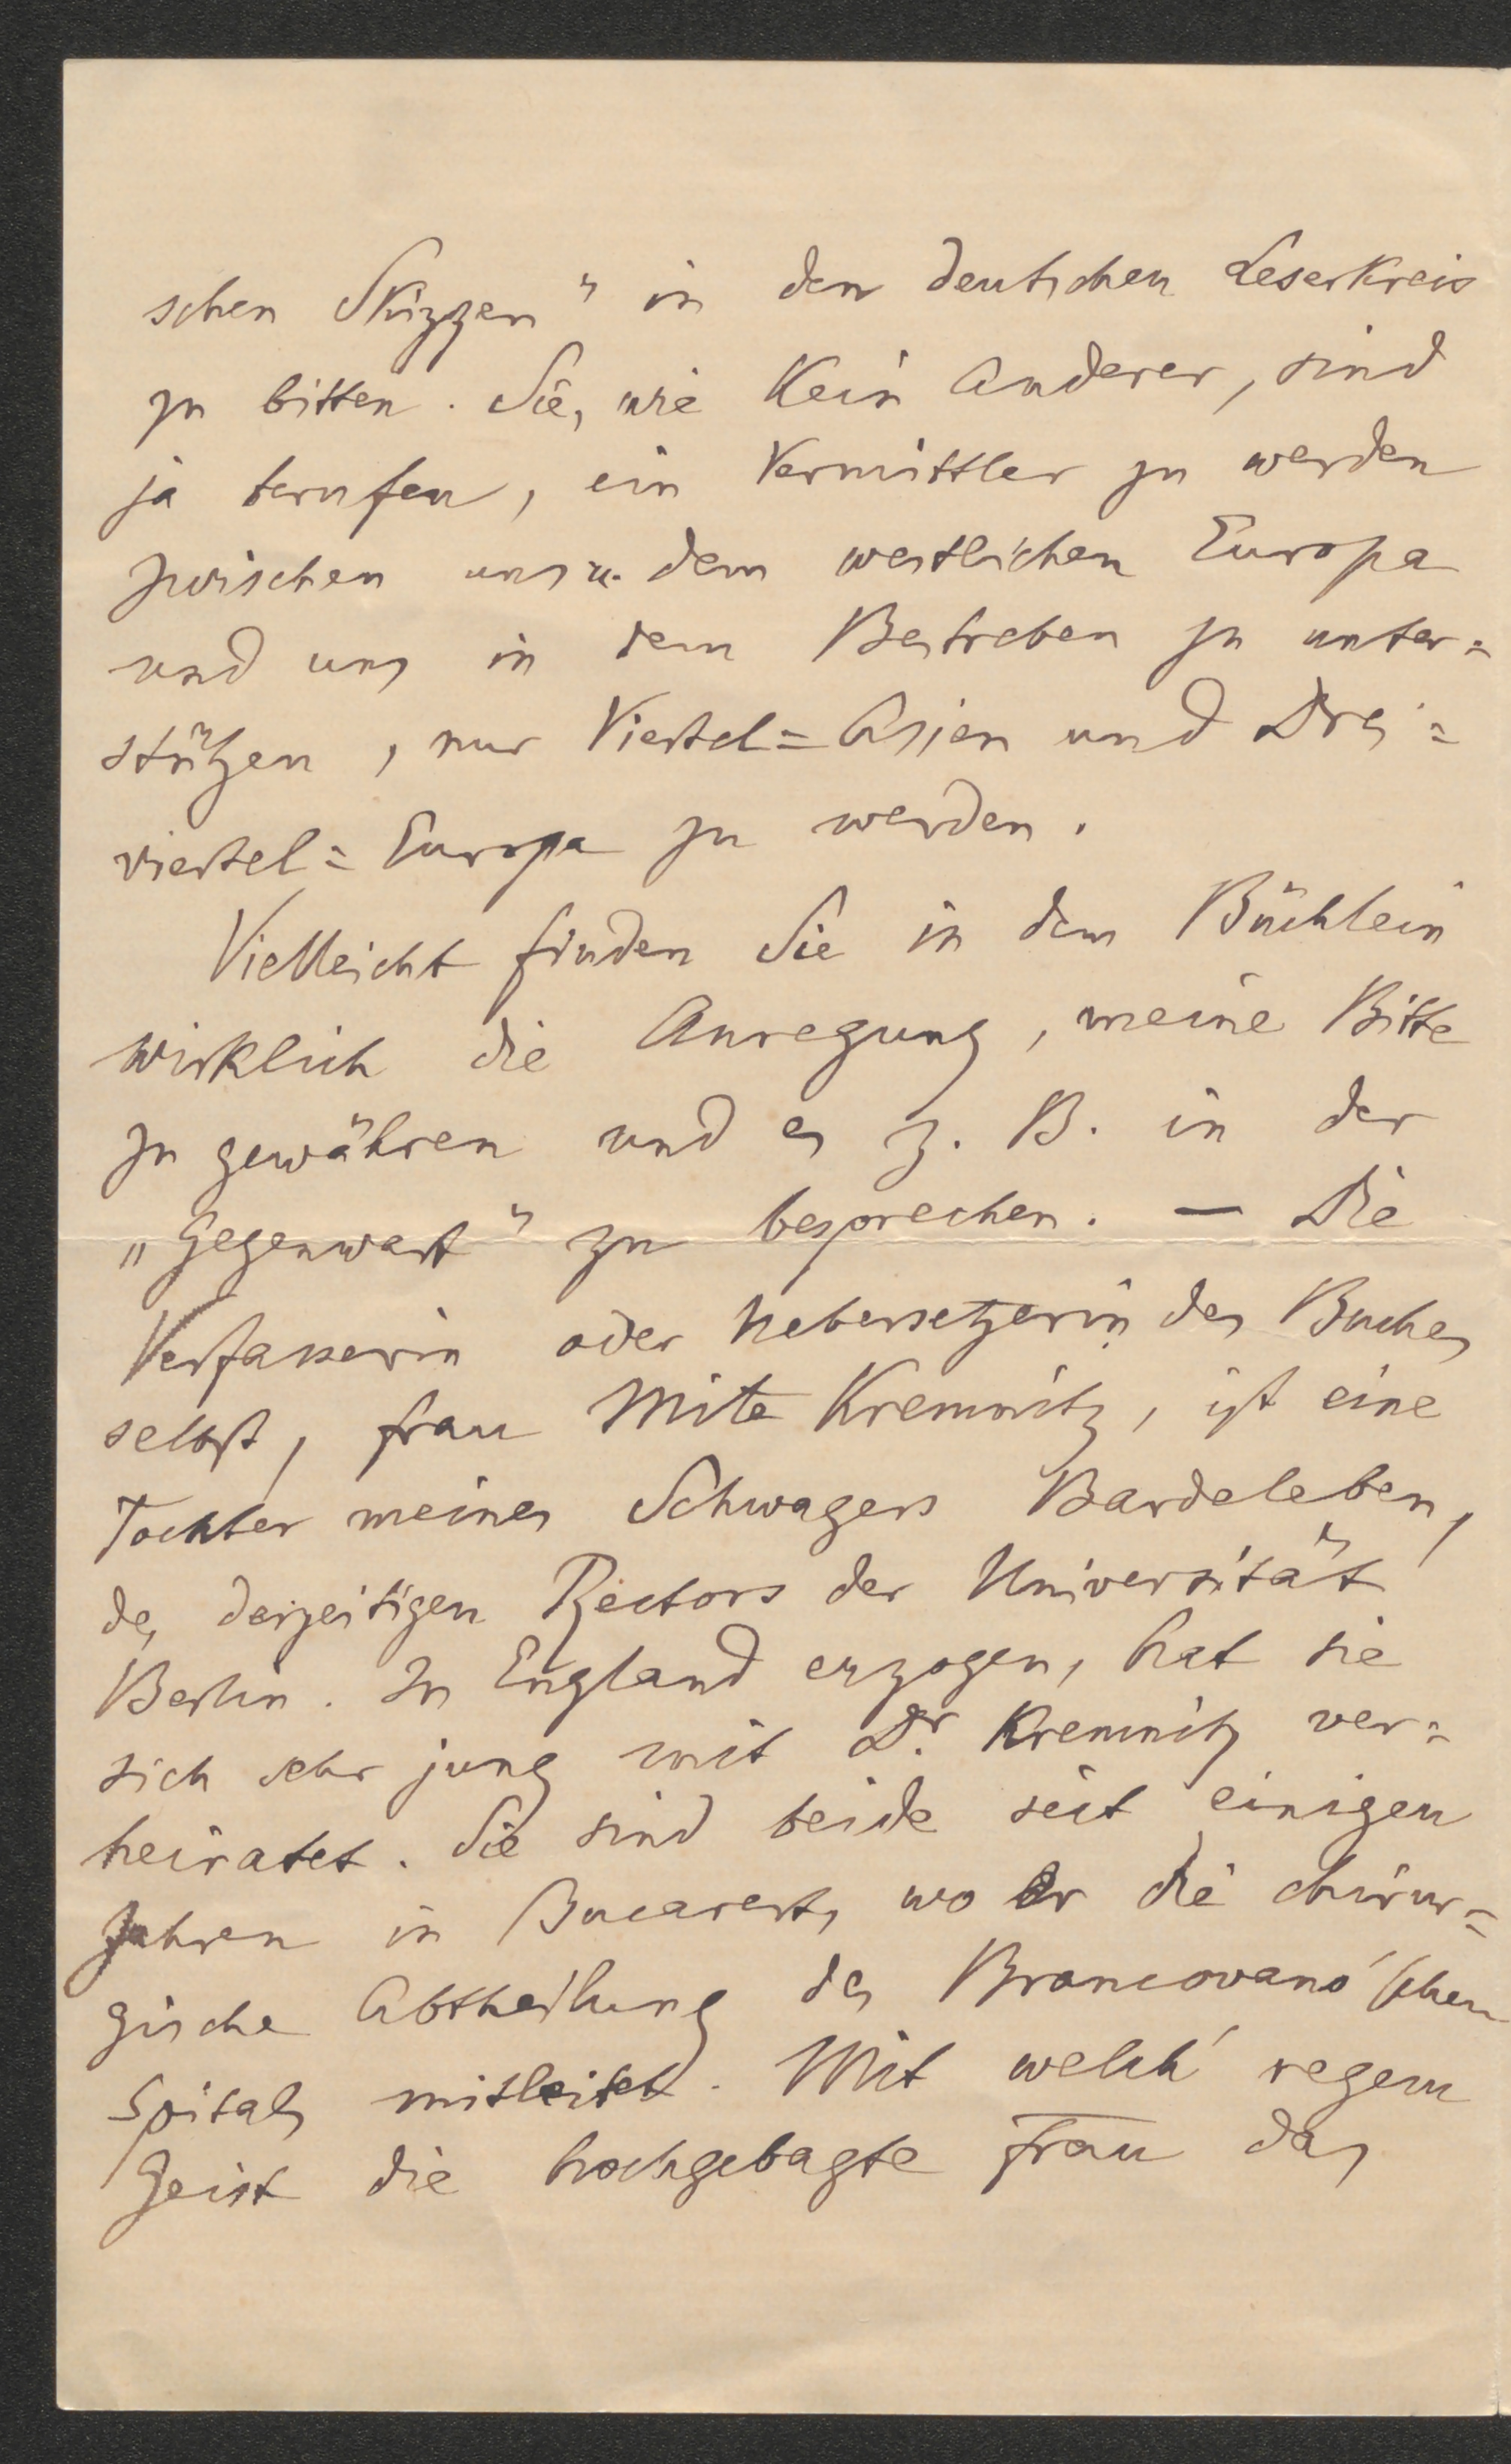 schen Skizzen" in den deutschen Leserkreis
zu bitten. Sie, wie Kein Anderer, sind
ja berufen, ein Vermittler zu werden
zwischen uns u. dem westlichen Europa
und uns in dem Bestreben zu unter=
stützen, nur Viertel=Asien und Drei=
viertel=Europa zu werden.
Vielleicht finden Sie in dem Büchlein
wirklich die Anregung, meine Bitte
zu gewähren und es z. B. in der
„Gegenwart" zu besprechen. — Die
Verfasserin oder Uebersetzerin des Buches
selbst, Frau Mite Kremnitz, ist eine
Tochter meines Schwagers Bardeleben,
des derzeitigen Rectors der Universität
Berlin. In England erzogen, hat sie
sich sehr jung mit Dr. Kremnitz ver=
heiratet. Sie sind beide seit einigen
Jahren in Bucarest, wo Er die chirur=
gische Abtheilung des Brancovano'schen
Spitals mitleitet. Mit welch' regem
Geist die hochgebagte Frau das